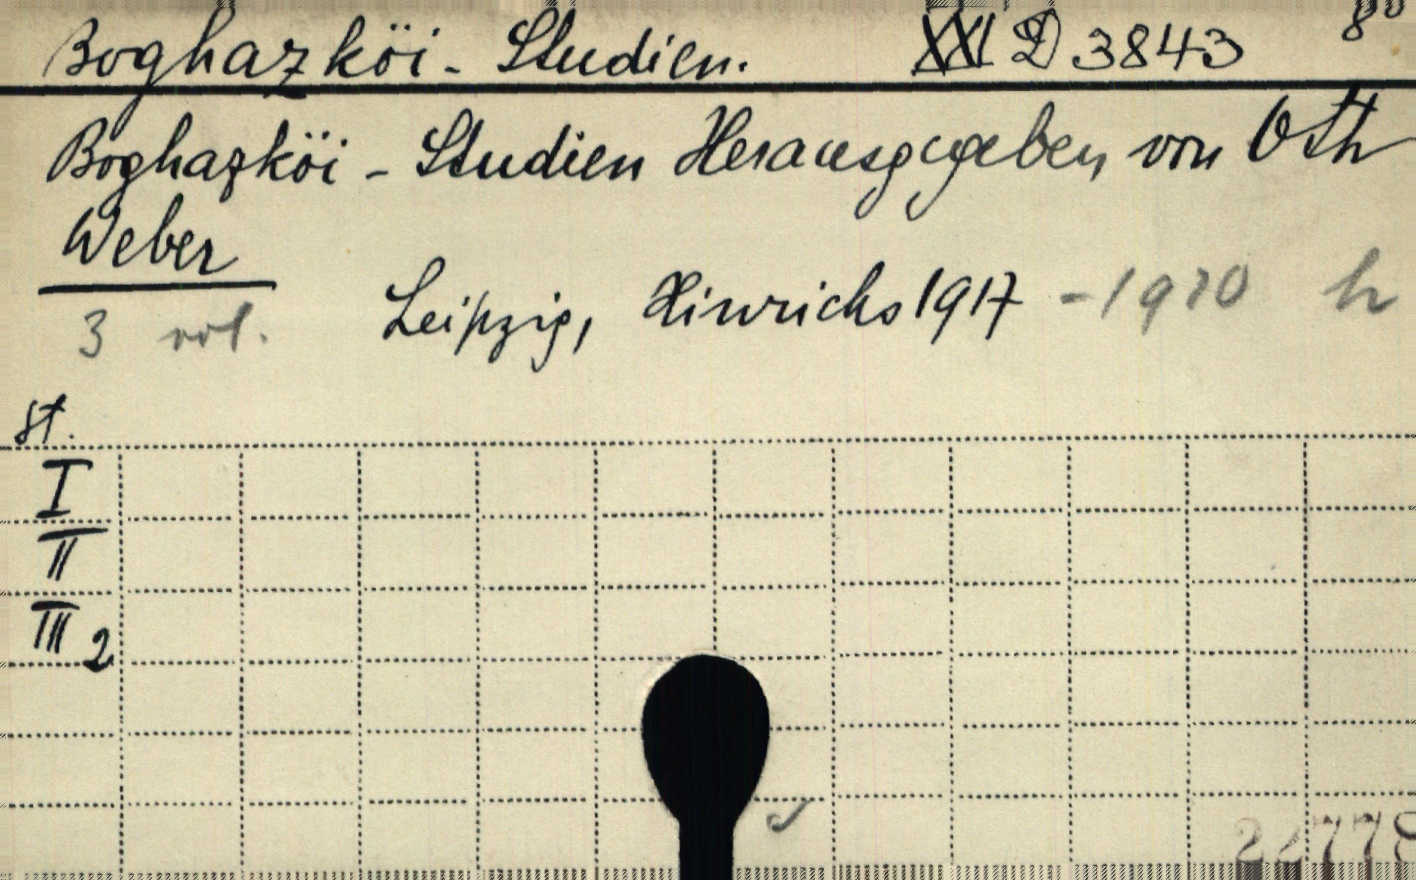 Boghazköi - Studien. XXI D 3843 8°
Boghazköi - Studien Herausgegeben von Otto
Weber
3 vol. Leipzig, Hinrichs 1917 - 1920 h
st.
I
II
III 2